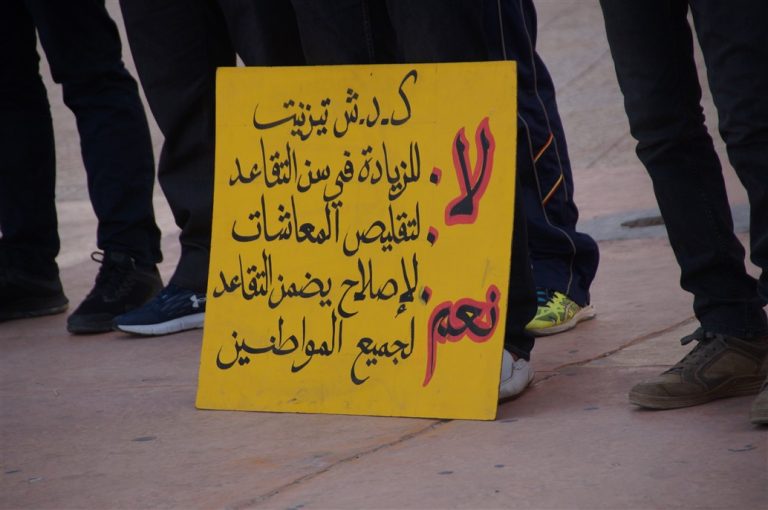 ك.د.ش تيزنيت
لا • للزيادة في سن التقاعد
• لتقليص المعاشات
نعم • لإصلاح يضمن التقاعد
لجميع المواطنين